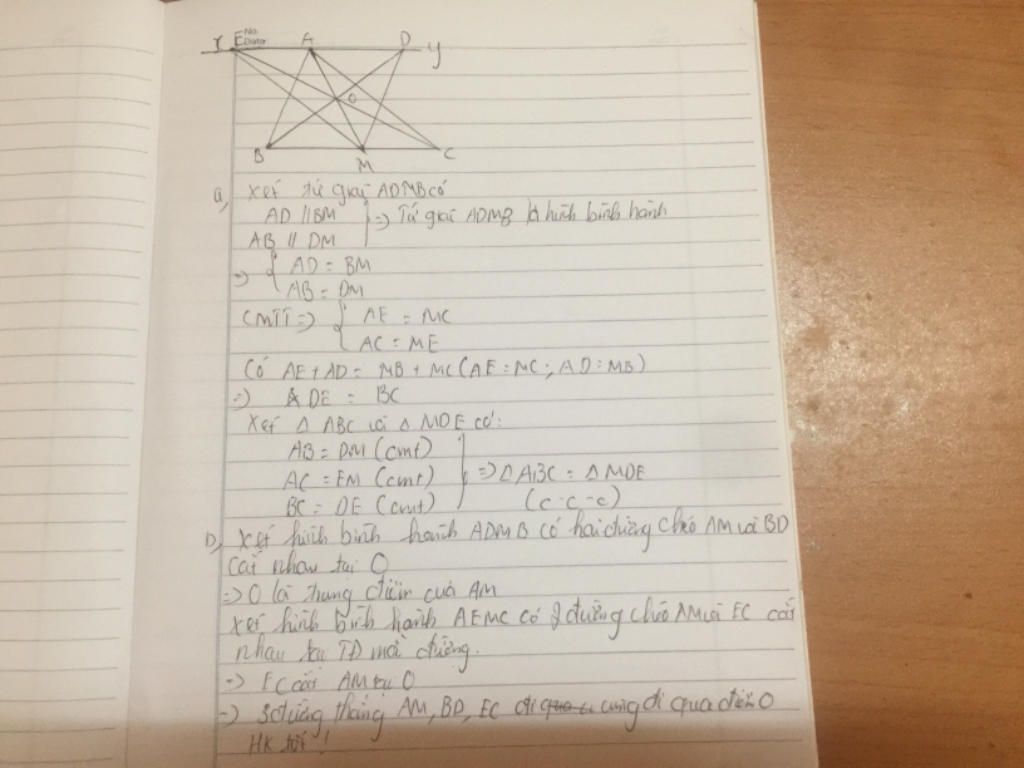 x E No. A D y
Date:
O
B M C
a, Xét tứ giác ADMB có
AD // BM
=> Tứ giác ADMB là hình bình hành
AB // DM
=> { AD = BM
AB = DM
CMTT => { AE = MC
AC = ME
Có AE + AD = MB + MC (AE = MC ; AD = MB)
=> DE = BC
Xét △ ABC và △ MDE có:
AB = DM (cmt)
AC = EM (cmt) => △ ABC = △ MDE
BC = DE (cmt) (c-c-c)
b, Xét hình bình hành ADMB có hai đường chéo AM và BD
cắt nhau tại O
=> O là trung điểm của AM
Xét hình bình hành AEMC có 2 đường chéo AM và EC cắt
nhau tại TĐ mỗi đường.
=> EC cắt AM tại O
=> 3 đường thẳng AM, BD, EC cùng đi qua điểm O
HK tốt !